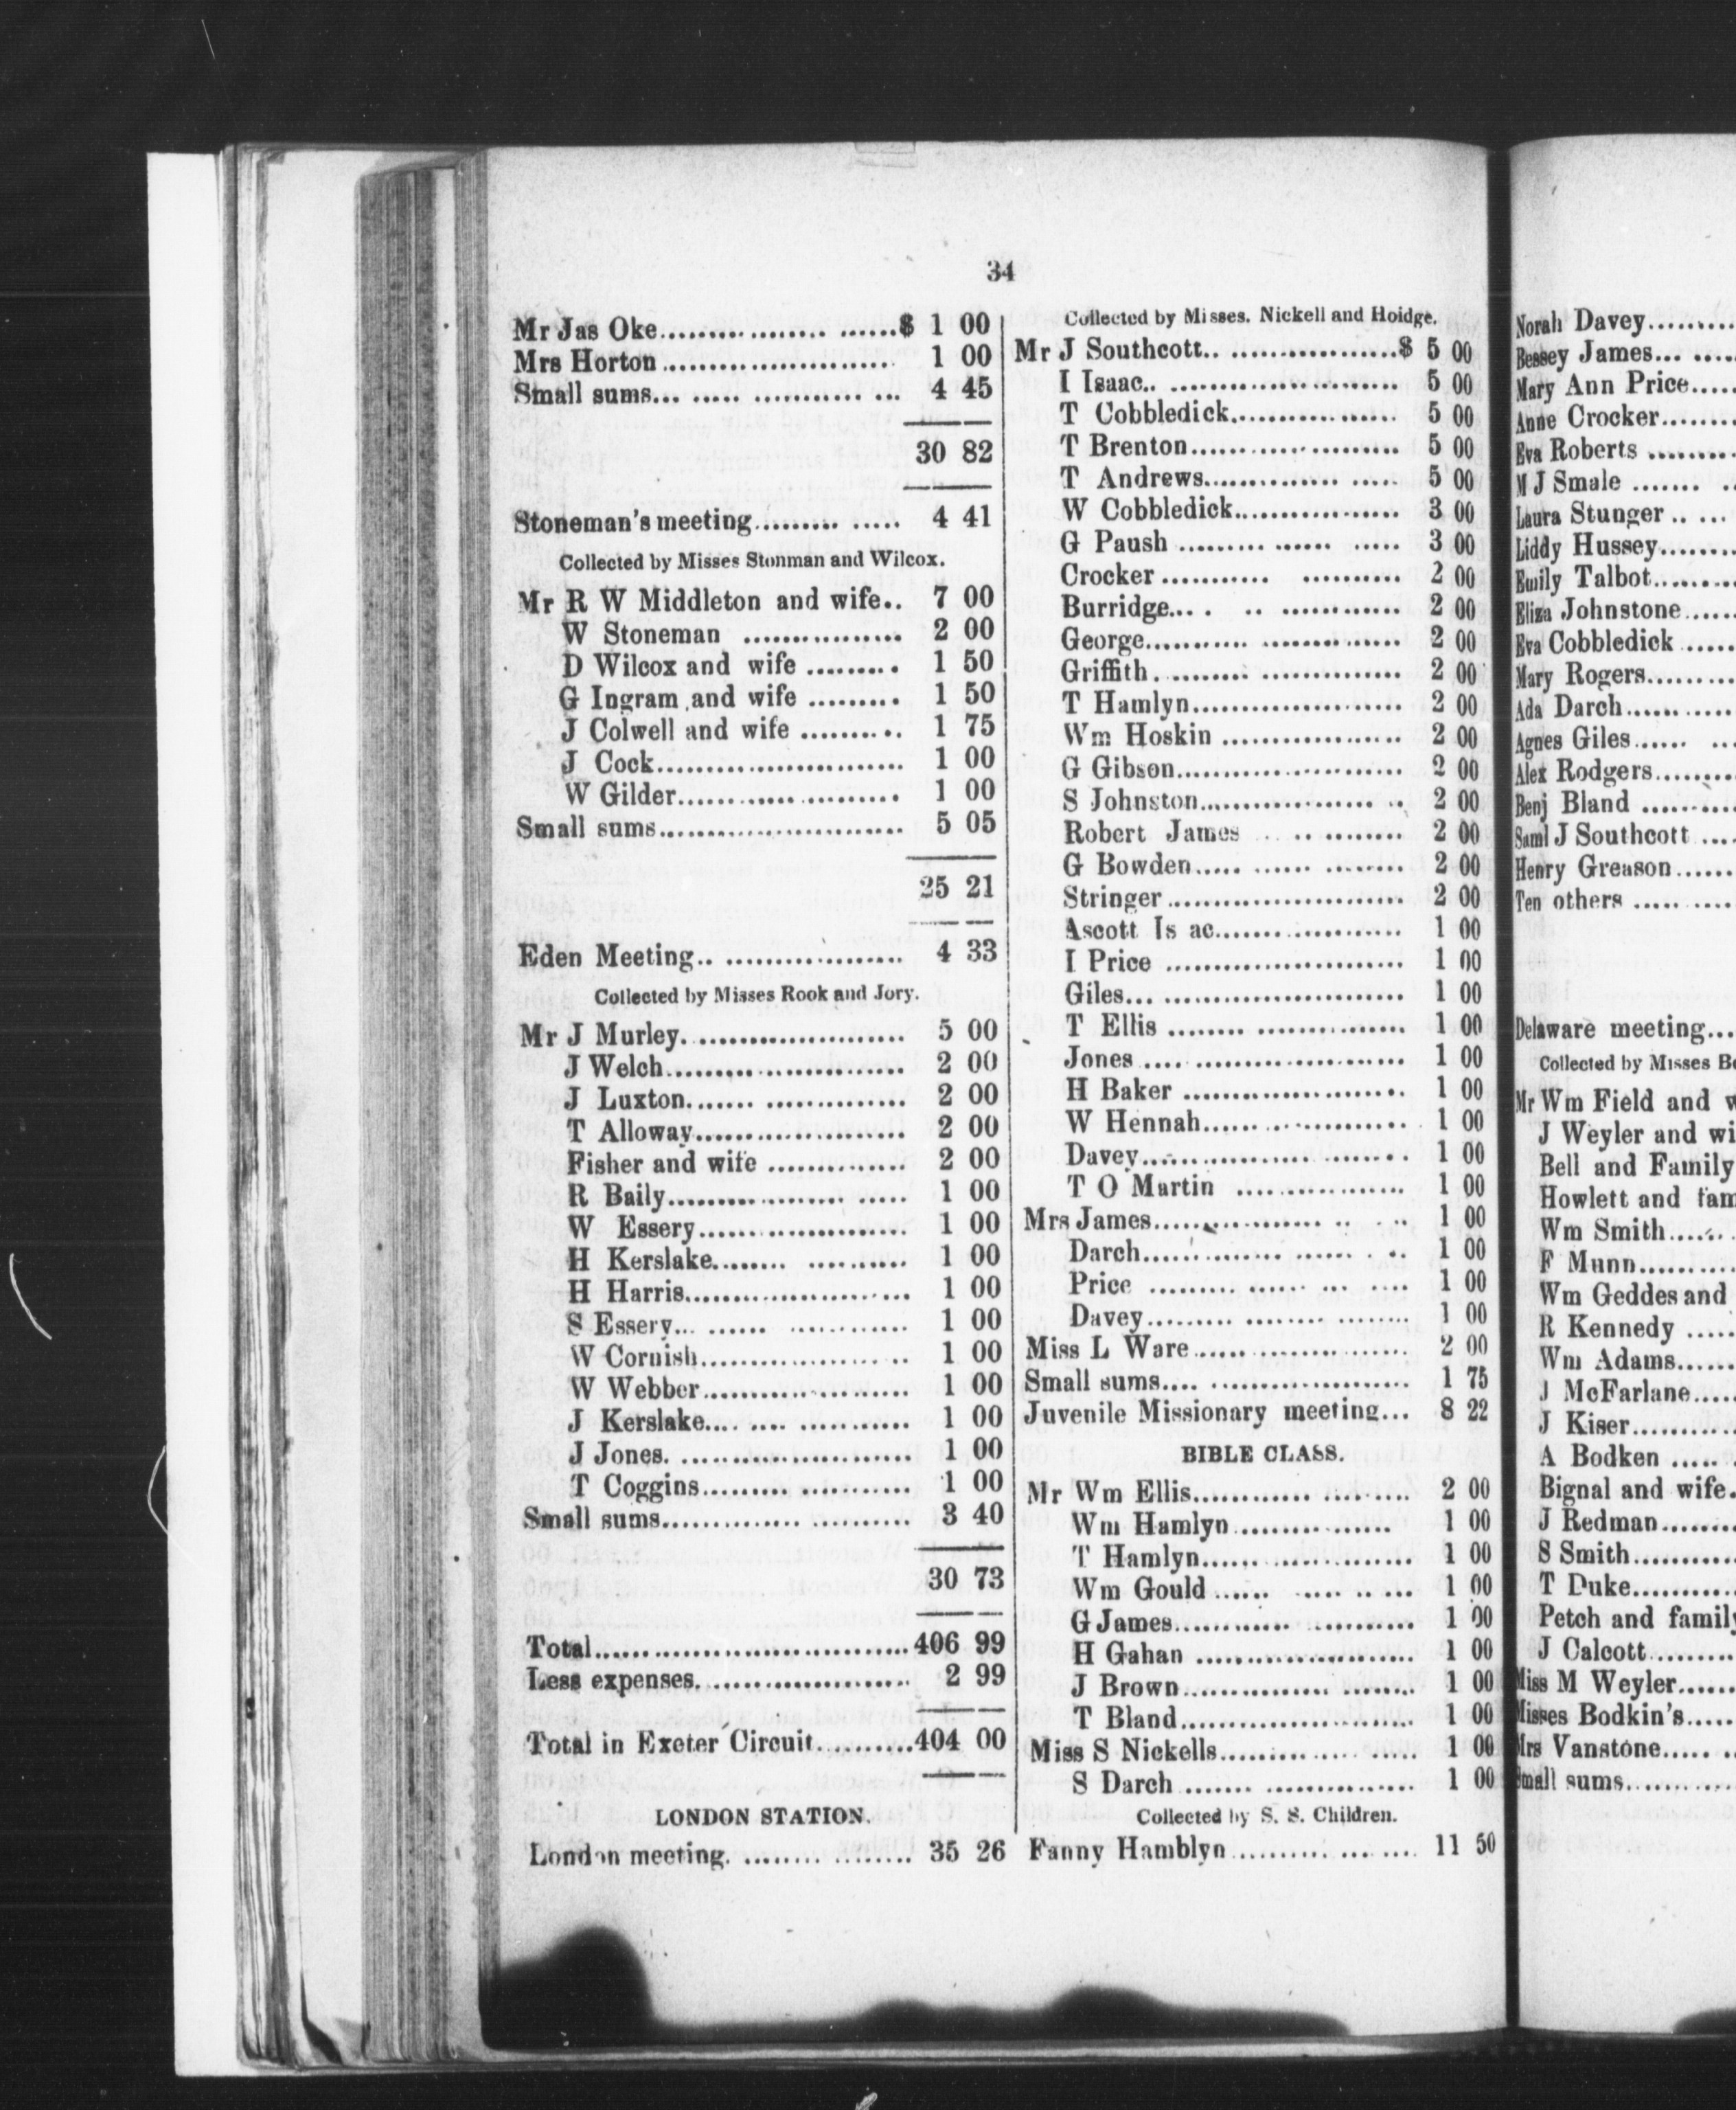 34
Mr Jas Oke.......................$ 1 00
Mrs Horton....................... 1 00
Small sums... ..... ........... ... 4 45
30 82
Stoneman's meeting......... ..... 4 41
Collected by Misses Stonman and Wilcox.
Mr R W Middleton and wife.. 7 00
W Stoneman ................ 2 00
D Wilcox and wife ......... 1 50
G Ingram and wife ......... 1 50
J Colwell and wife .......... 1 75
J Cock......................... 1 00
W Gilder...................... 1 00
Small sums........................ 5 05
25 21
Eden Meeting.. .................. 4 33
Collected by Misses Rook and Jory.
Mr J Murley...................... 5 00
J Welch........................ 2 00
J Luxton....... .............. 2 00
T Alloway..................... 2 00
Fisher and wife .............. 2 00
R Baily.................. ..... 1 00
W Essery..................... 1 00
H Kerslake........ .......... 1 00
H Harris....................... 1 00
S Essery... ...... ............ 1 00
W Cornish..................... 1 00
W Webber..................... 1 00
J Kerslake.... .... ........... 1 00
J Jones. ....................... 1 00
T Coggins......... ........... 1 00
Small sums.............. .......... 3 40
30 73
Total................................406 99
Less expenses...................... 2 99
Total in Exeter Circuit..........404 00
LONDON STATION.
London meeting. ........ ........ 35 26
Collected by Misses. Nickell and Hoidge.
Mr J Southcott.. .................$ 5 00
I Isaac.. ....................... 5 00
T Cobbledick................. 5 00
T Brenton..................... 5 00
T Andrews.............. ..... 5 00
W Cobbledick................. 3 00
G Paush ......... ...... ..... 3 00
Crocker ........... .......... 2 00
Burridge... . .. ............ 2 00
George........... .............. 2 00
Griffith. ........ .............. 2 00
T Hamlyn..................... 2 00
Wm Hoskin .................. 2 00
G Gibson....................... 2 00
S Johnston................. .. 2 00
Robert James .. .. ........ 2 00
G Bowden..... ...... ........ 2 00
Stringer........................ 2 00
Ascott Is ac................... 1 00
I Price ........................ 1 00
Giles... ........................ 1 00
T Ellis ........ ............... 1 00
Jones .... ..................... 1 00
H Baker ...................... 1 00
W Hennah..................... 1 00
Davey.......................... 1 00
T O Martin ................. 1 00
Mrs James................. .. . .. 1 00
Darch.............. ...... . .. 1 00
Price ......... ...... ... .... 1 00
Davey......... ........ ........ 1 00
Miss L Ware...................... 2 00
Small sums.... .................... 1 75
Juvenile Missionary meeting... 8 22
BIBLE CLASS.
Mr Wm Ellis............ ......... 2 00
Wm Hamlyn ................ 1 00
T Hamlyn..................... 1 00
Wm Gould ...... ..... .. ... 1 00
G James............ .......... 1 00
H Gahan ...................... 1 00
J Brown............... ........ 1 00
T Bland....................... 1 00
Miss S Nickells.................... 1 00
S Darch ....... ............... 1 00
Collected by S. S. Children.
Fanny Hamblyn .......... ... .... 11 50
Norah Davey.........
Bessey James... ....
Mary Ann Price.....
Anne Crocker........
Eva Roberts .........
M J Smale ....... ..
Laura Stunger .. ...
Liddy Hussey........
Emily Talbot.........
Eliza Johnstone.....
Eva Cobbledick .....
Mary Rogers.........
Ada Darch...........
Agnes Giles...... ...
Alex Rodgers........
Benj Bland .........
Saml J Southcott ...
Henry Greason......
Ten others ..... .....
Delaware meeting...
Collected by Misses
Mr Wm Field and
J Weyler and
Bell and Family
Howlett and
Wm Smith......
F Munn..........
Wm Geddes and
R Kennedy .....
Wm Adams......
J McFarlane....
J Kiser...........
A Bodken ..... .
Bignal and wife.
J Redman........
S Smith..........
T Duke...........
Petch and family
J Calcott.........
Miss M Weyler......
Misses Bodkin's.....
Mrs Vanstone..... ..
Small sums...........